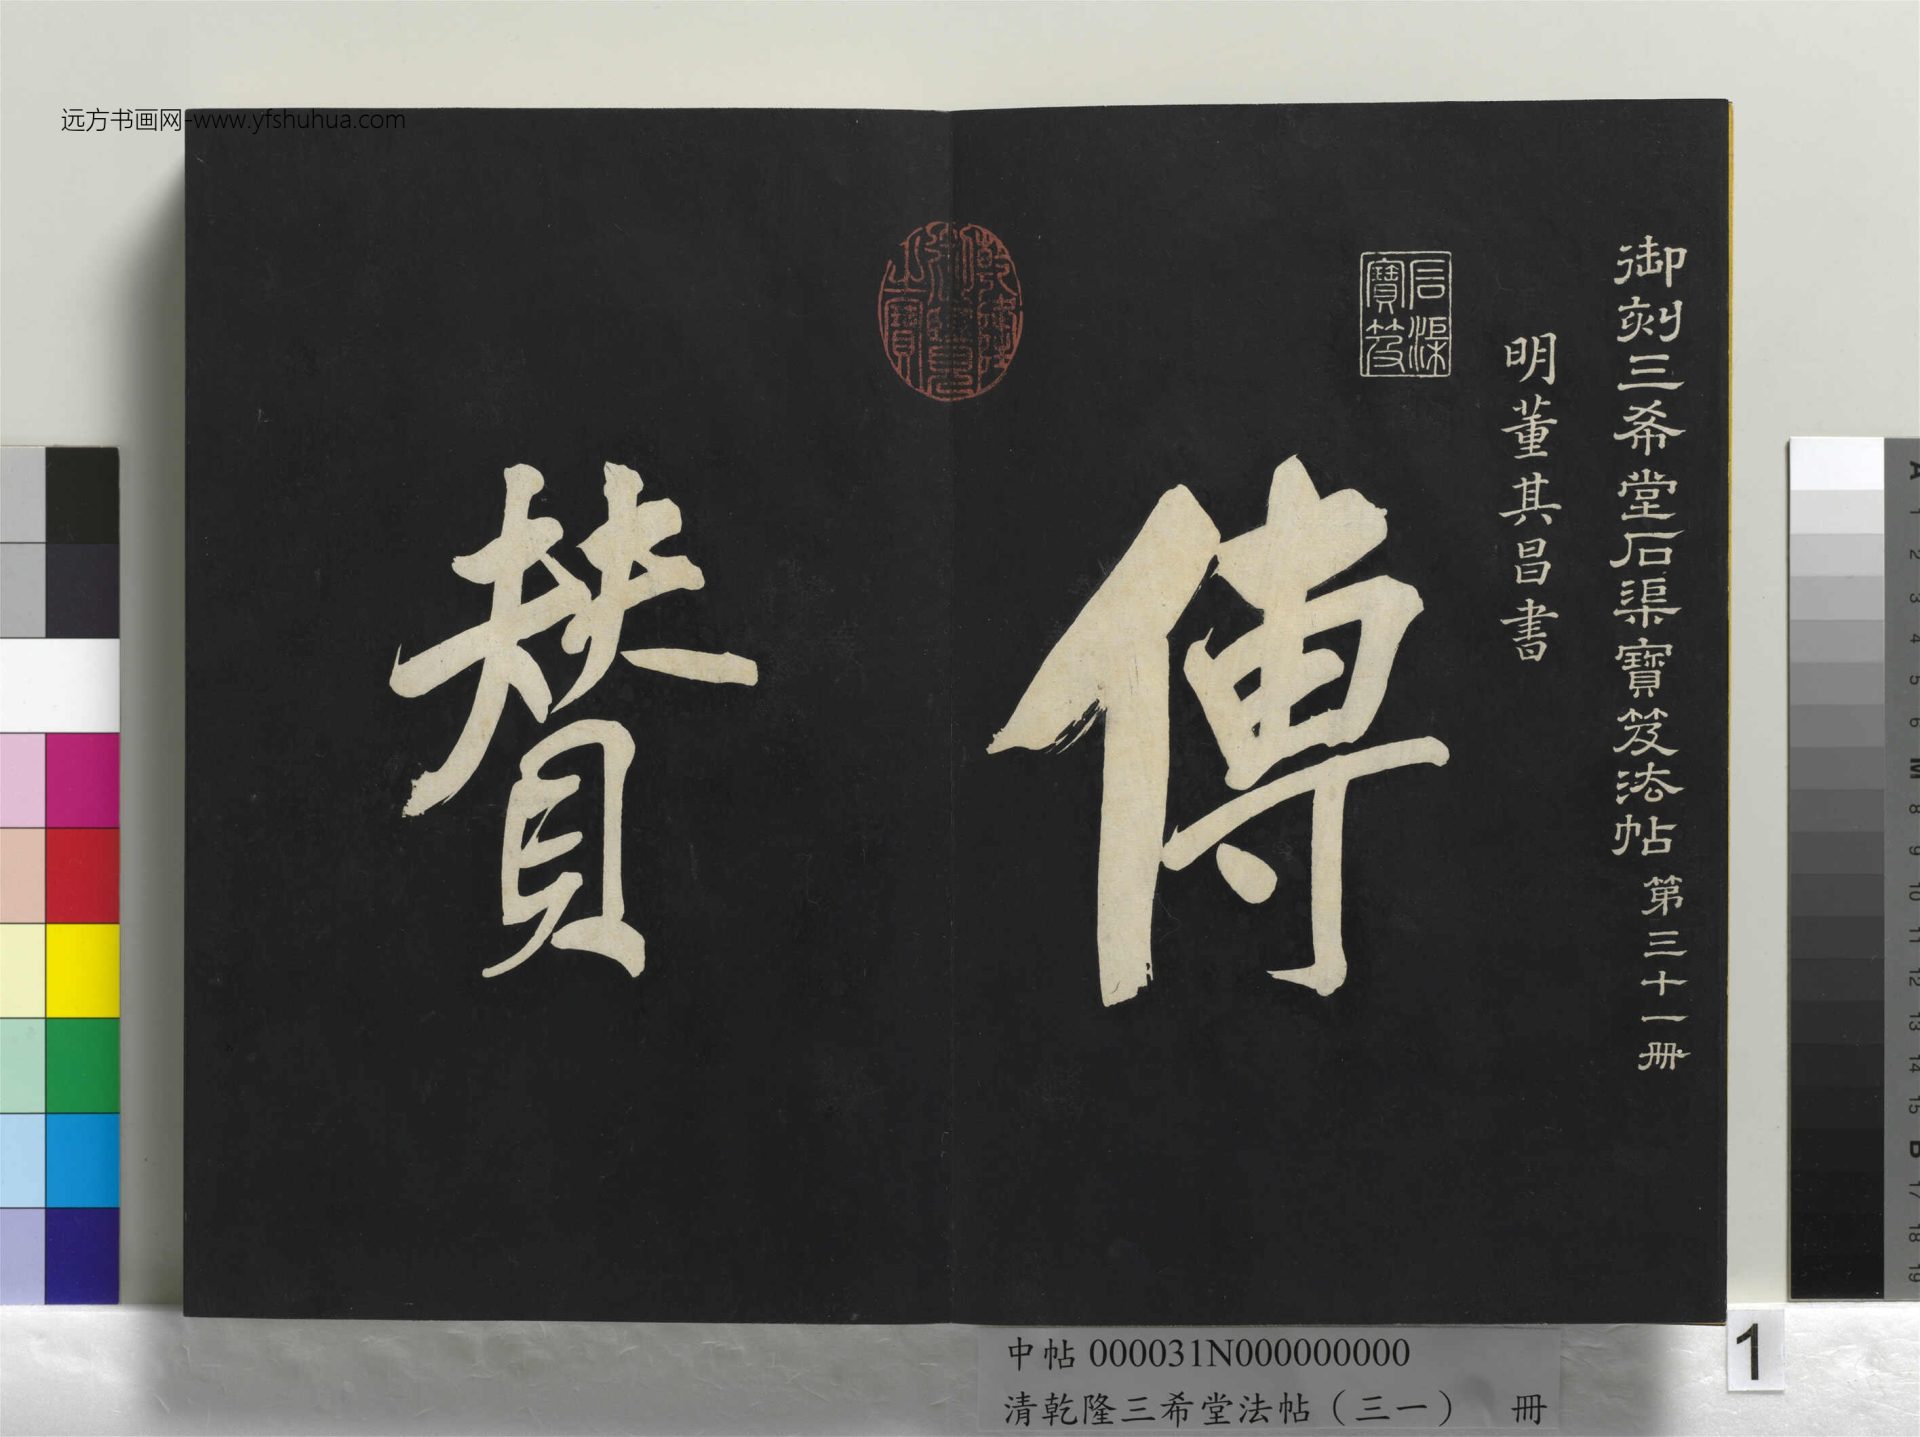 远方书画网-www.yfshuhua.com
御刻三希堂石渠寶笈法帖第三十一冊
明董其昌書
石渠
寶笈
傳
贊
中帖 000031N000000000
清乾隆三希堂法帖（三一） 冊
1
A
1
2
3
4
5
6
M
8
9
10
11
12
13
14
15
B
17
18
19